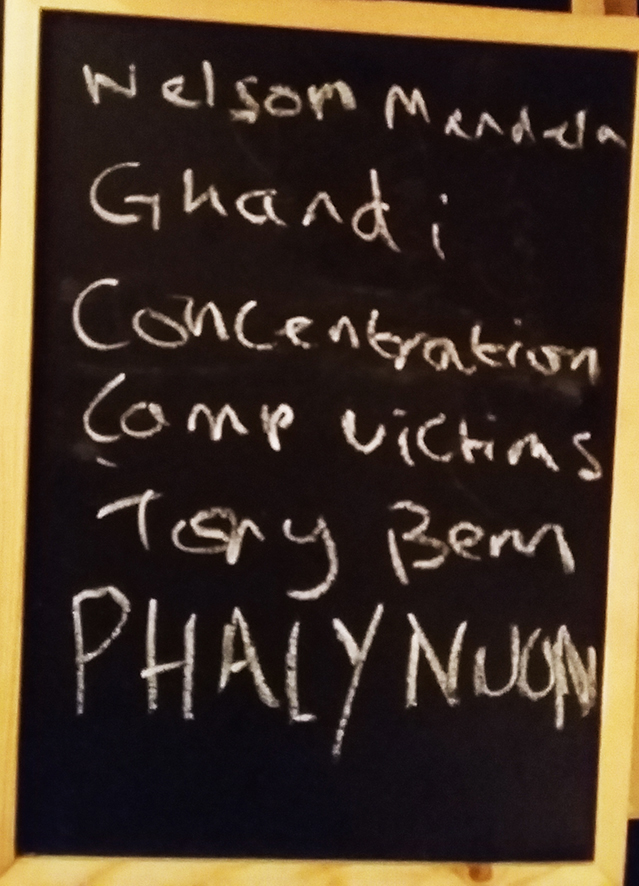 Nelson Mandela
Ghandi
Concentration
Camp victims
Tony Benn
PHALY NUON